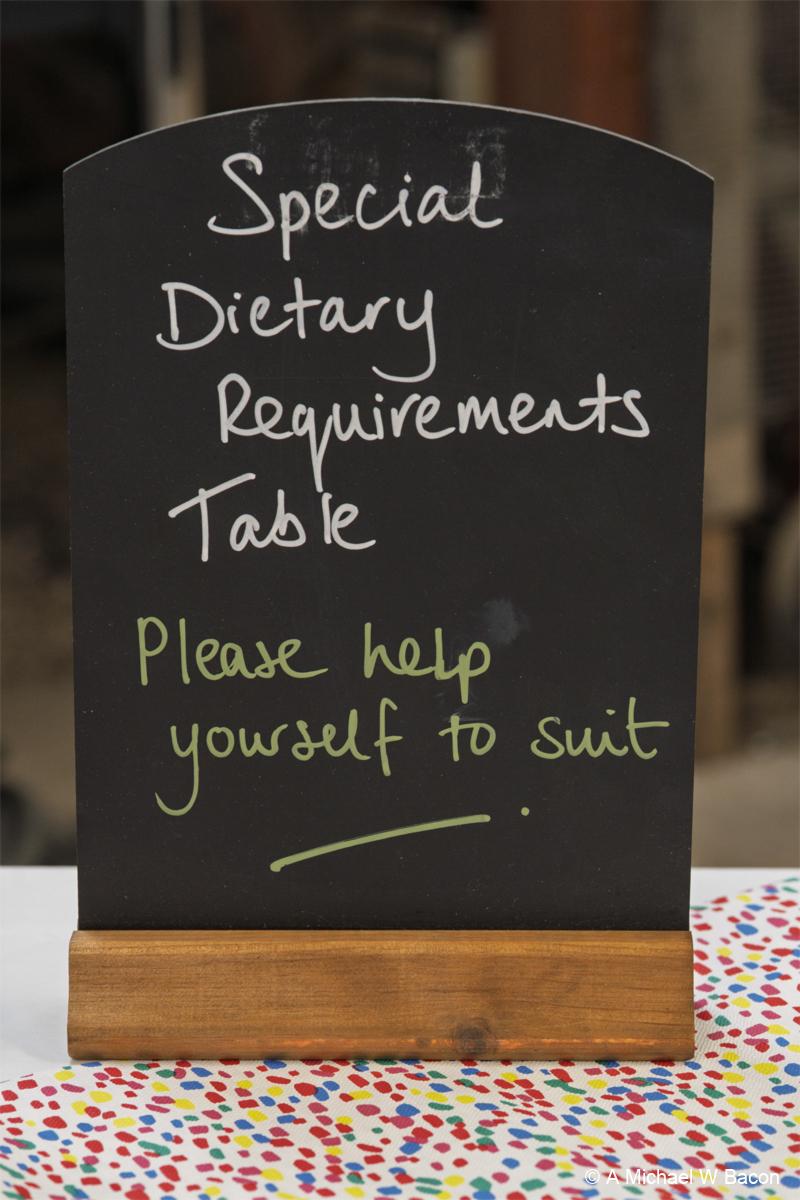 Special
Dietary
Requirements
Table
Please help
yourself to suit
.
© A Michael W Bacon